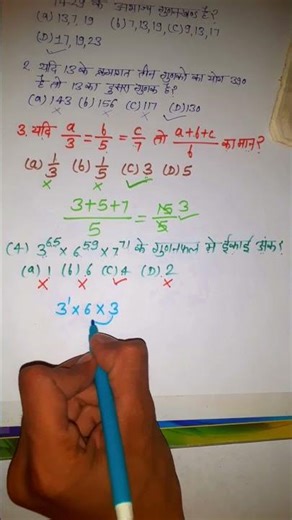 1429 के अभाज्य गुणनखंड है?
(a) 13,7,19 (b) 7,13,19, (C) 9,13,17
(D) 17,19,23
2. यदि 13 के क्रमागत तीन गुणकों का योग 390
है तो 13 का दूसरा गुणक है?
(a) 143 (b) 156 (C) 117 (D) 130
3. यदि a/3 = b/5 = c/7 तो a+b+c/b का मान?
(a) 1/3 (b) 1/5 (C) 3 (D) 5
3+5+7/5 = 15/5 3
(4) 3^65 × 6^59 × 7^71 के गुणनफल में ईकाई अंक?
(a) 1 (b) 6 (C) 4 (D) 2
3^1 × 6 × 3